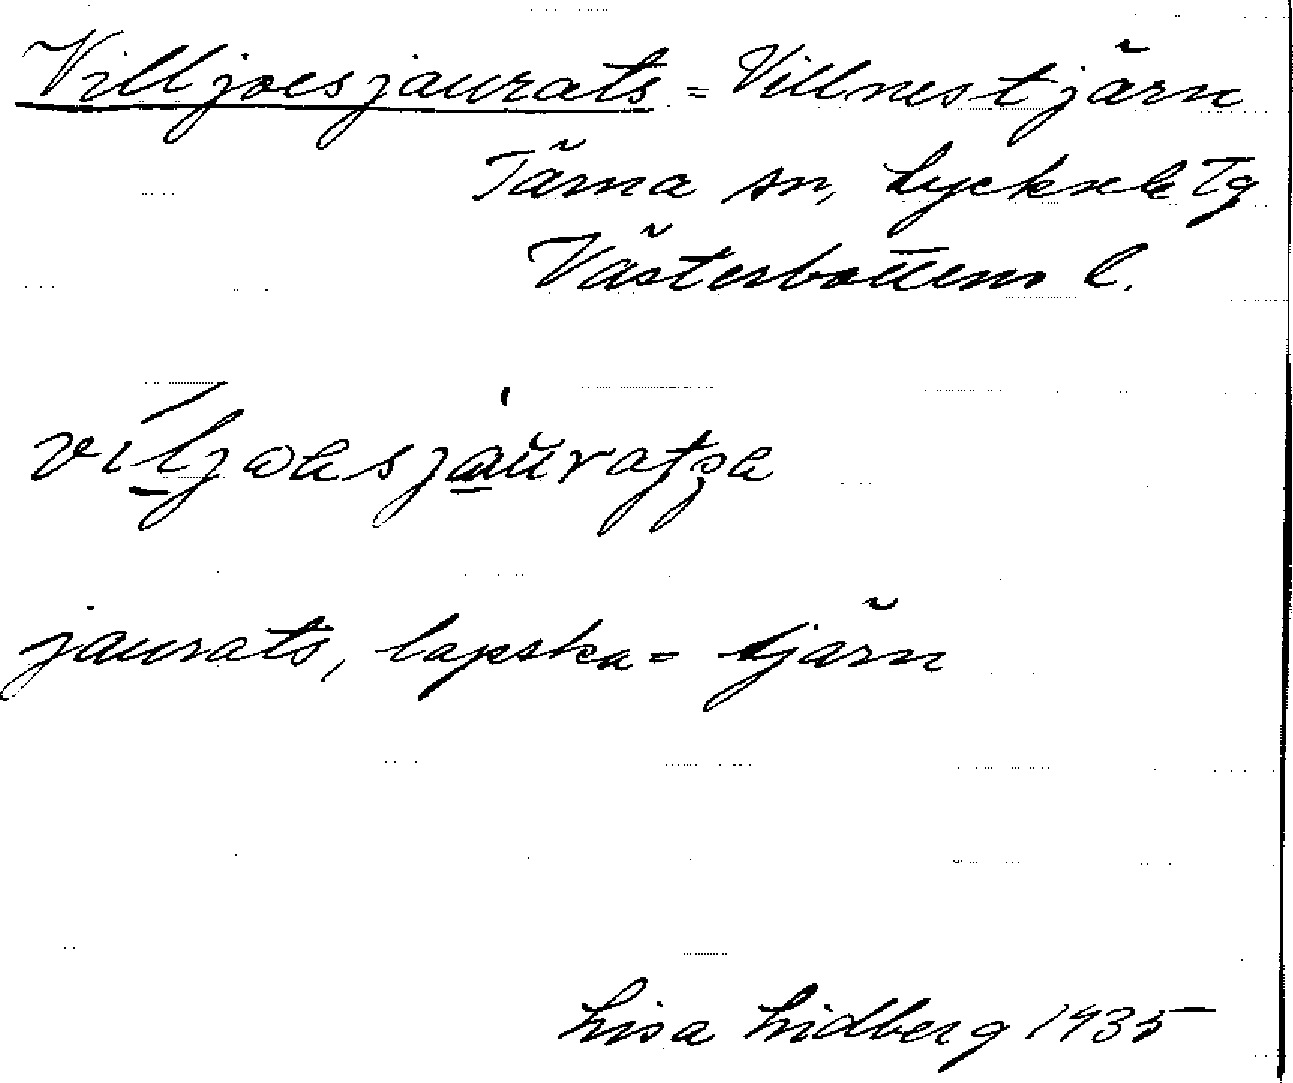 Villjoesjaurats = Villnestjärn
Tärna sn, Lycksele Tg
Västerbottens l.
jaurats, lapska = tjärn
Lisa Lidberg 1935